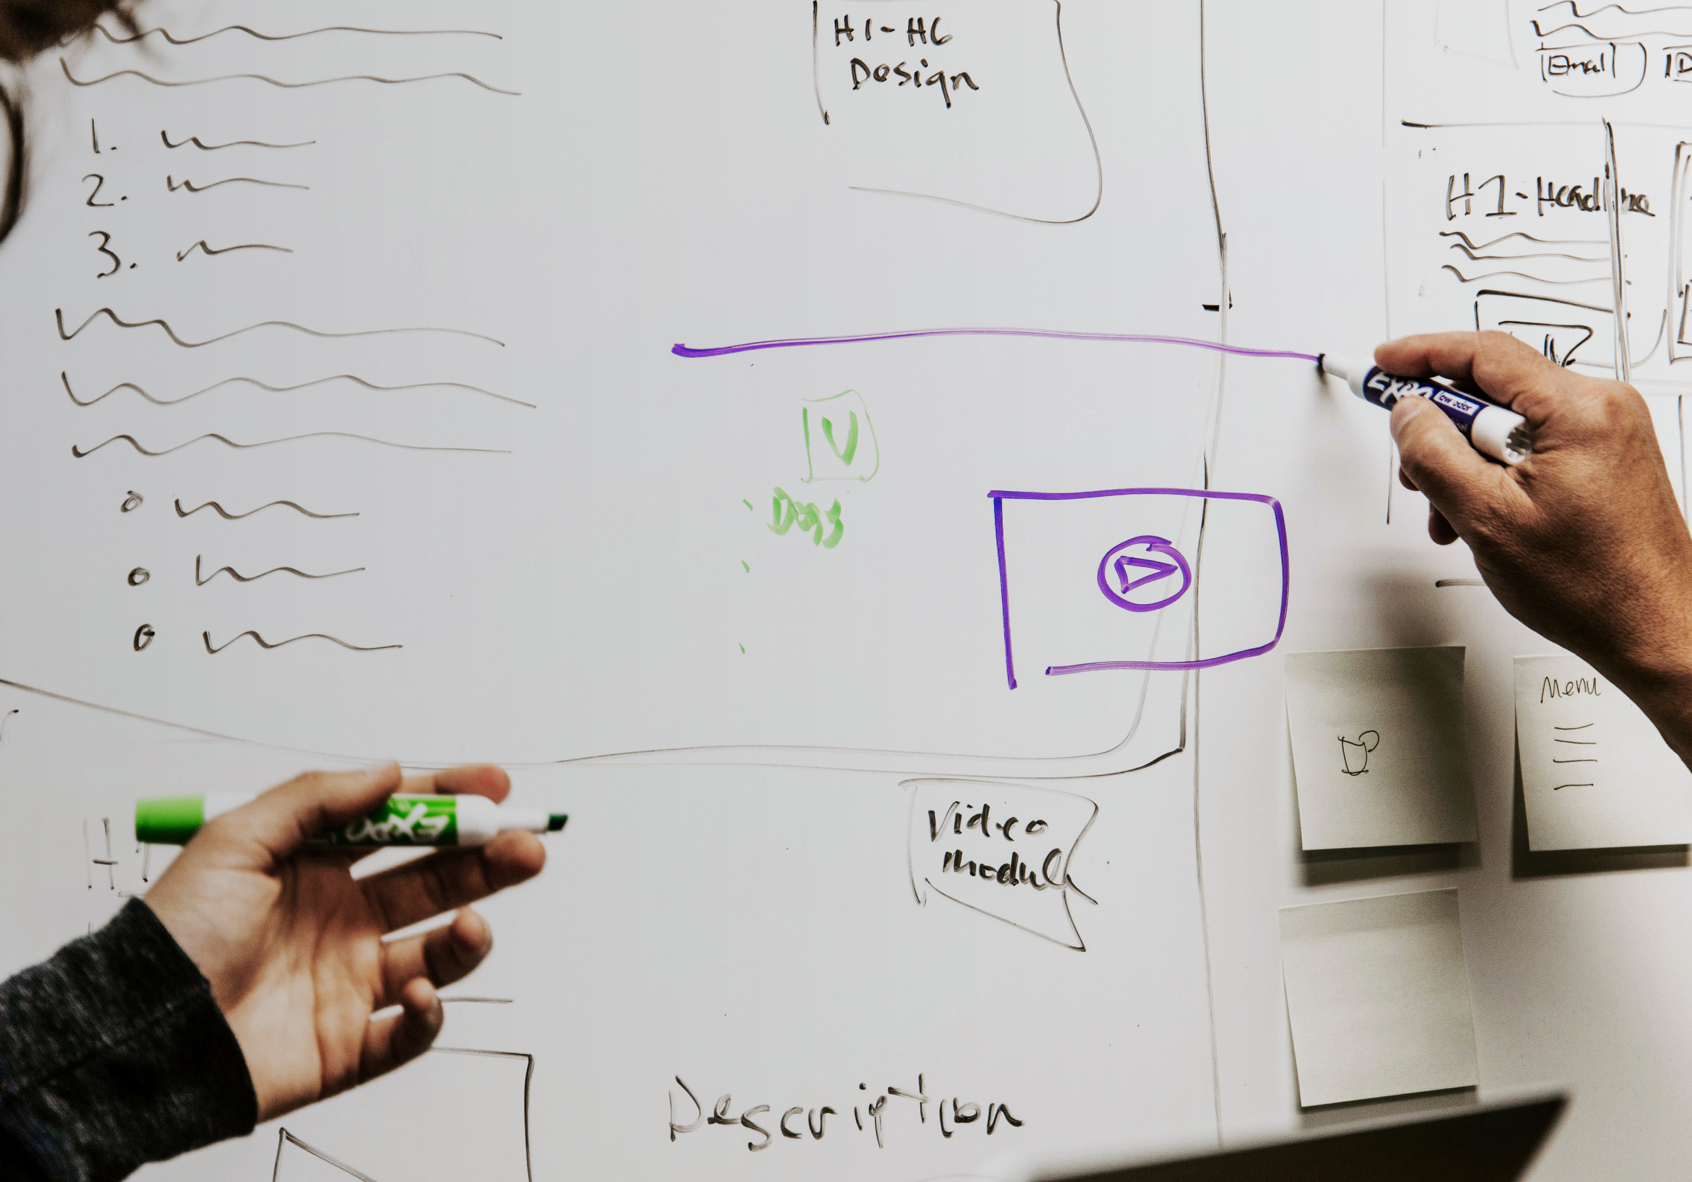 H1-H6
Design
Email
H1-Headline
1.
2.
3.
EXPO
low odor
V
Docs
Menu
H1
EXPO
Video
Module
Description